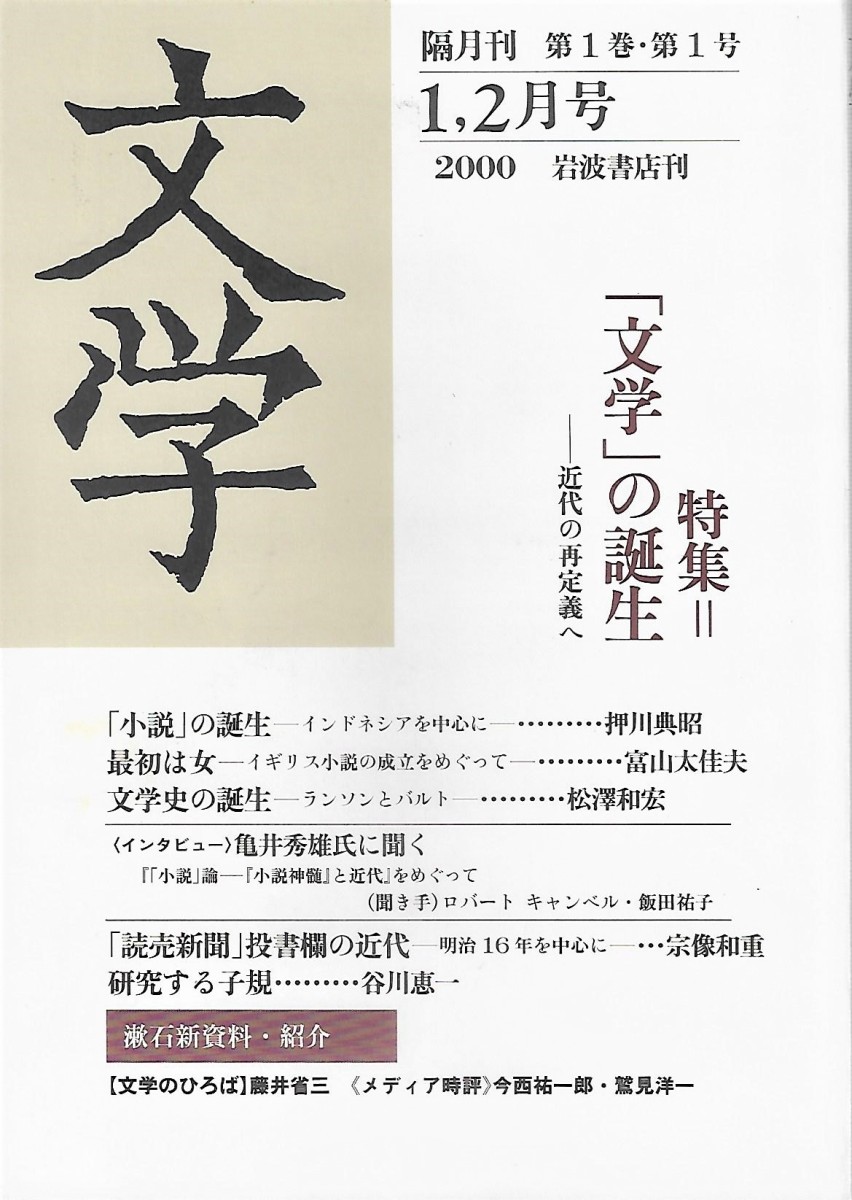 文学
隔月刊 第1巻・第1号
1,2月号
2000 岩波書店刊
特集=
「文学」の誕生
――近代の再定義へ
「小説」の誕生―インドネシアを中心に―………押川典昭
最初は女―イギリス小説の成立をめぐって―………富山太佳夫
文学史の誕生―ランソンとバルト―………松澤和宏
〈インタビュー〉亀井秀雄氏に聞く
『「小説」論――『小説神髄』と近代』をめぐって
(聞き手)ロバート キャンベル・飯田祐子
「読売新聞」投書欄の近代―明治16年を中心に―…宗像和重
研究する子規………谷川恵一
漱石新資料・紹介
【文学のひろば】藤井省三 《メディア時評》今西祐一郎・鷲見洋一